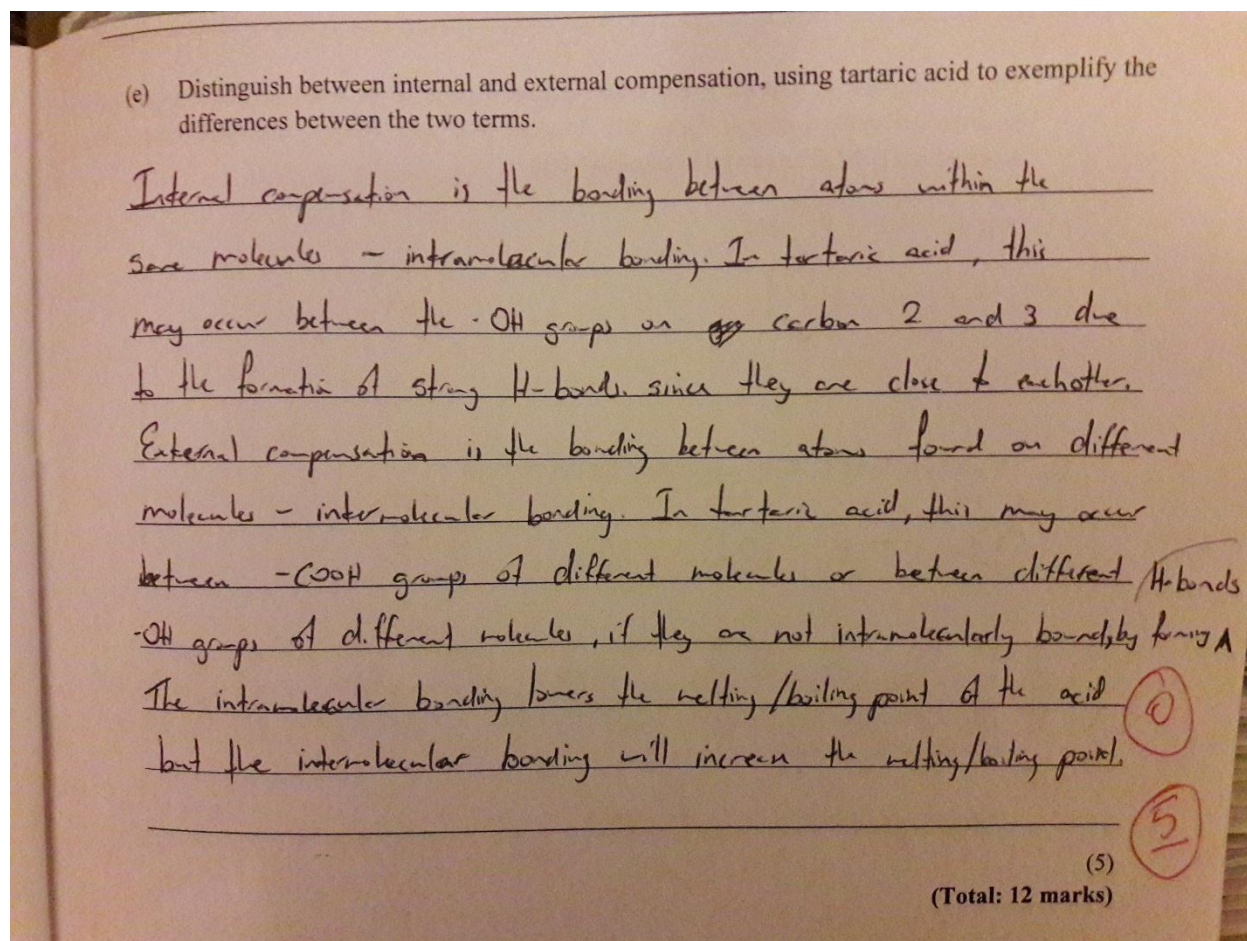 (e) Distinguish between internal and external compensation, using tartaric acid to exemplify the
differences between the two terms.
Internal compensation is the bonding between atoms within the
same molecules - intramolecular bonding. In tartaric acid, this
may occur between the -OH groups on carbon 2 and 3 due
to the formation of strong H-bonds. since they are close to eachother.
External compensation is the bonding between atoms found on different
molecules - intermolecular bonding. In tartaric acid, this may occur
between -COOH groups of different molecules or between different H-bonds
-OH groups of different molecules, if they are not intramolecularly bound, by forming ʌ
The intramolecular bonding lowers the melting/boiling point of the acid
but the intermolecular bonding will increase the melting/boiling point.
0
5
(5)
(Total: 12 marks)